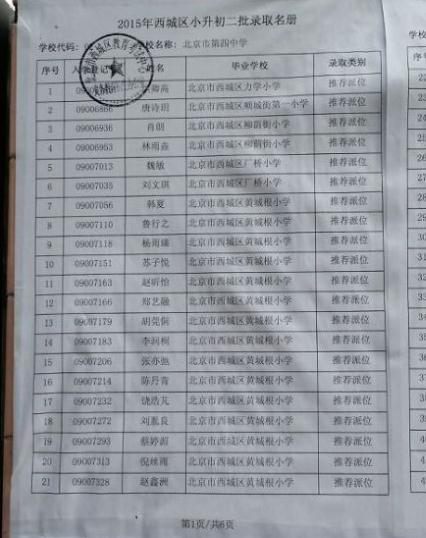 2015年西城区小升初二批录取名册
学校代码： 学校名称：北京市第四中学
序号 入学登记 姓名 毕业学校 录取类别
1 北京市西城区力学小学 推荐派位
2 09006866 唐诗玥 北京市西城区顺城街第一小学 推荐派位
3 09006936 肖朗 北京市西城区柳荫街小学 推荐派位
4 09006953 林雨 北京市西城区柳荫街小学 推荐派位
5 09007013 魏敏 北京市西城区厂桥小学 推荐派位
6 09007035 刘文琪 北京市西城区厂桥小学 推荐派位
7 09007056 韩夏 北京市西城区黄城根小学 推荐派位
8 09007110 鲁行之 北京市西城区黄城根小学 推荐派位
9 09007118 杨雨臻 北京市西城区黄城根小学 推荐派位
10 09007151 苏子悦 北京市西城区黄城根小学 推荐派位
11 09007163 赵昕怡 北京市西城区黄城根小学 推荐派位
12 09007166 郑艺融 北京市西城区黄城根小学 推荐派位
13 09007179 胡莞 北京市西城区黄城根小学 推荐派位
14 09007183 李润桐 北京市西城区黄城根小学 推荐派位
15 09007206 张亦弛 北京市西城区黄城根小学 推荐派位
16 09007214 陈丹青 北京市西城区黄城根小学 推荐派位
17 09007232 饶浩凡 北京市西城区黄城根小学 推荐派位
18 09007272 刘胤良 北京市西城区黄城根小学 推荐派位
19 09007293 蔡婷 北京市西城区黄城根小学 推荐派位
20 09007313 倪 北京市西城区黄城根小学 推荐派位
21 09007328 赵鑫洲 北京市西城区黄城根小学 推荐派位
第1页/共6页